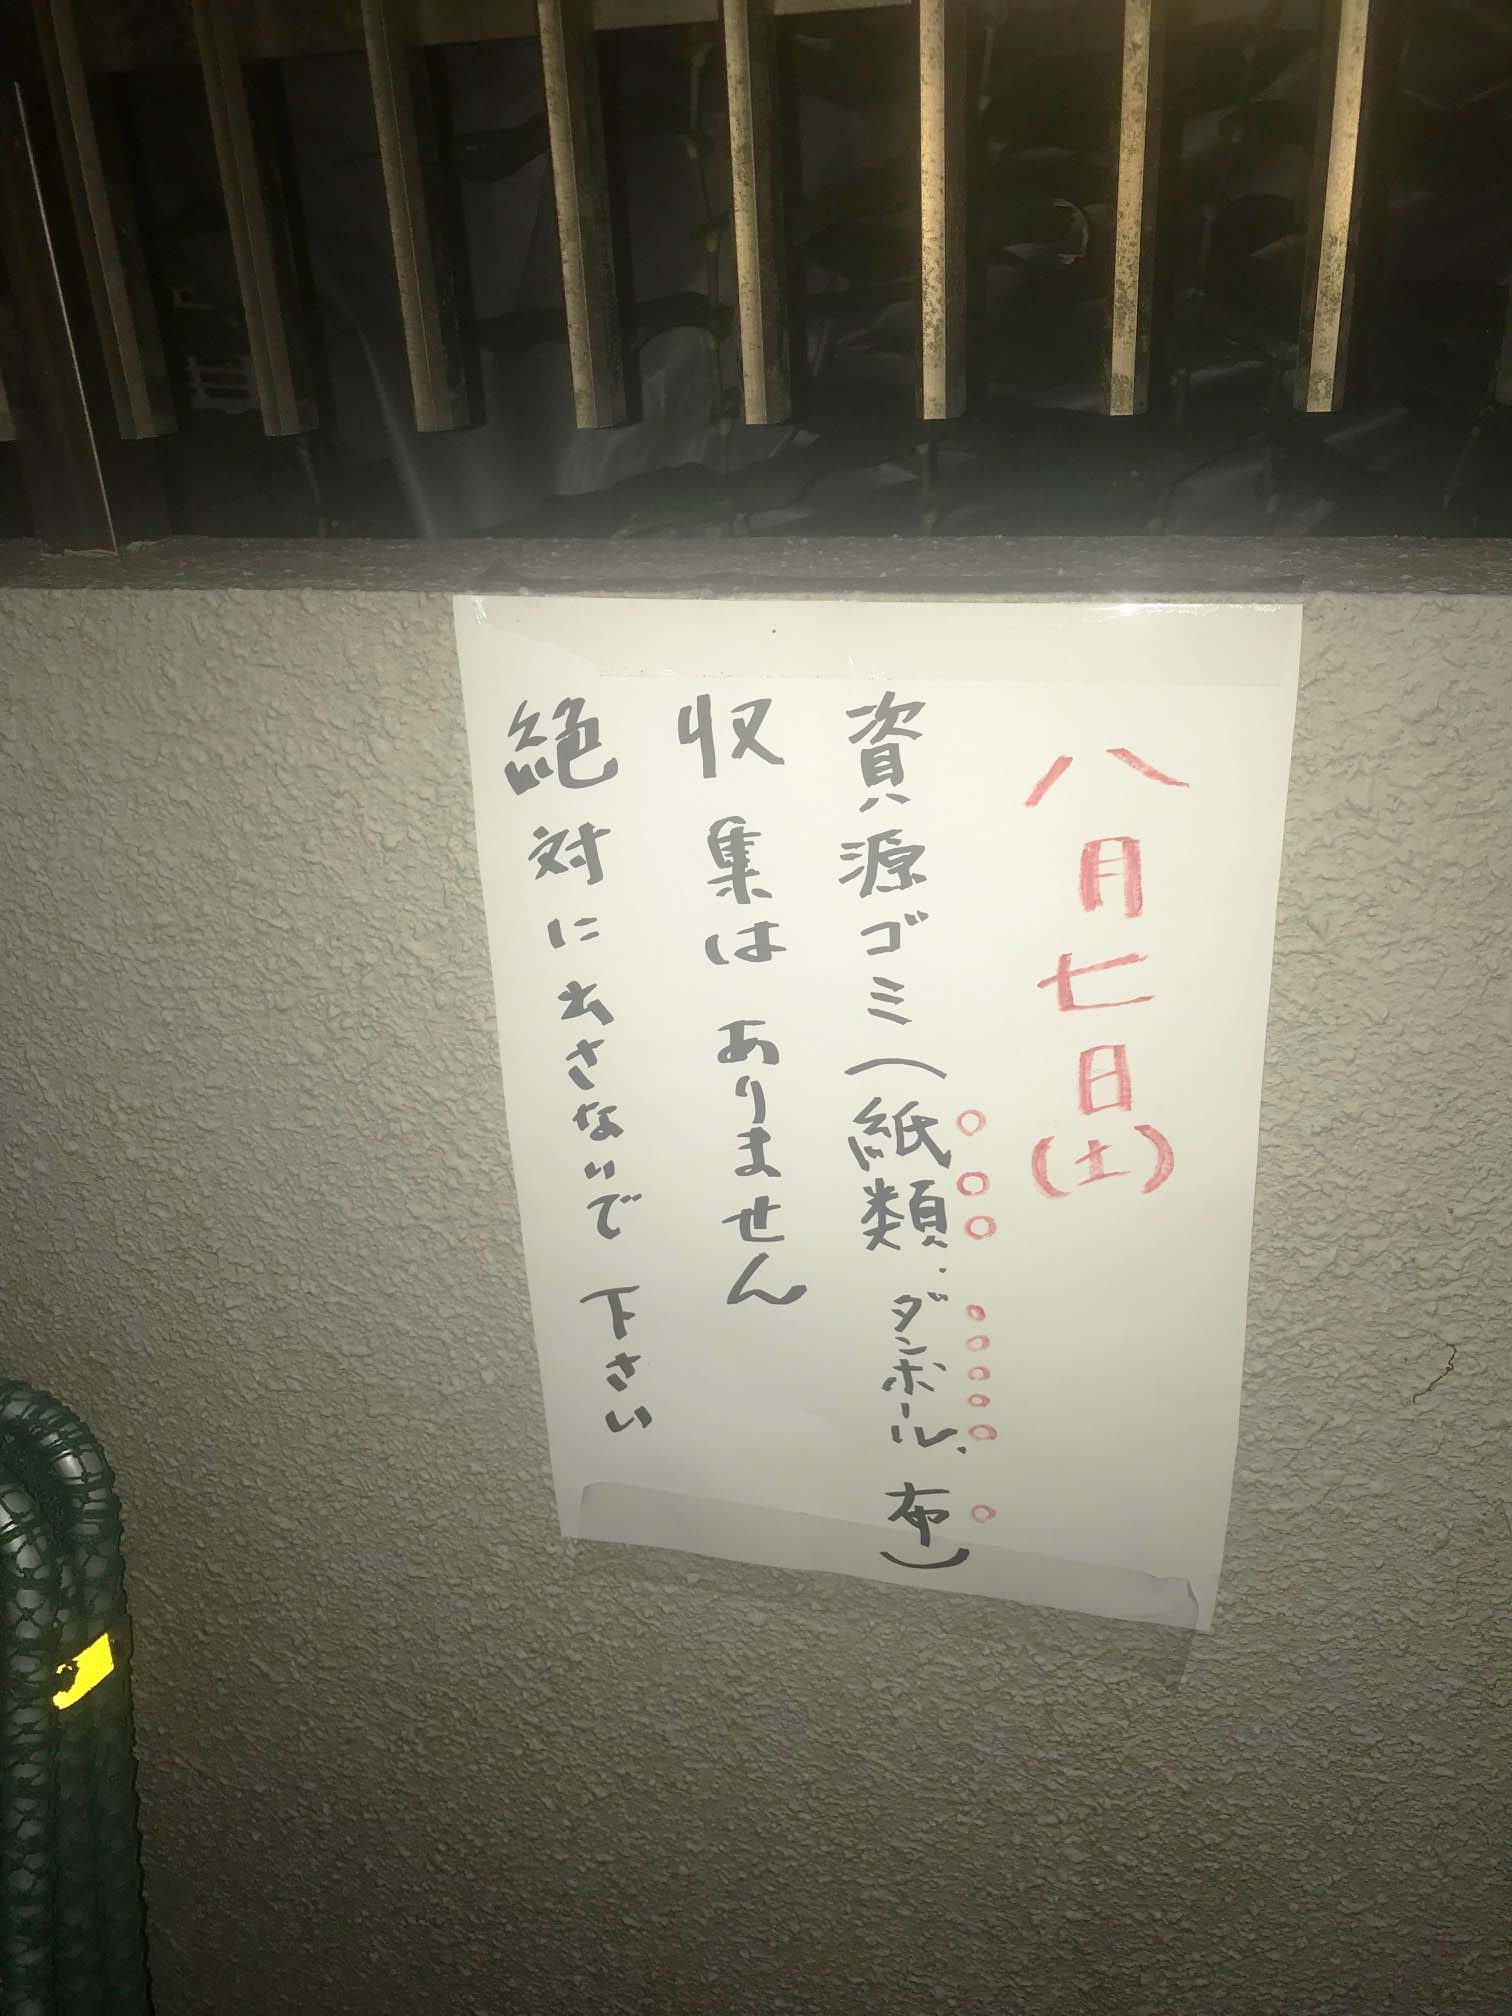 八月七日(土)
資源ゴミ(紙類、ダンボール、布)
収集はありません
絶対に出さないで下さい